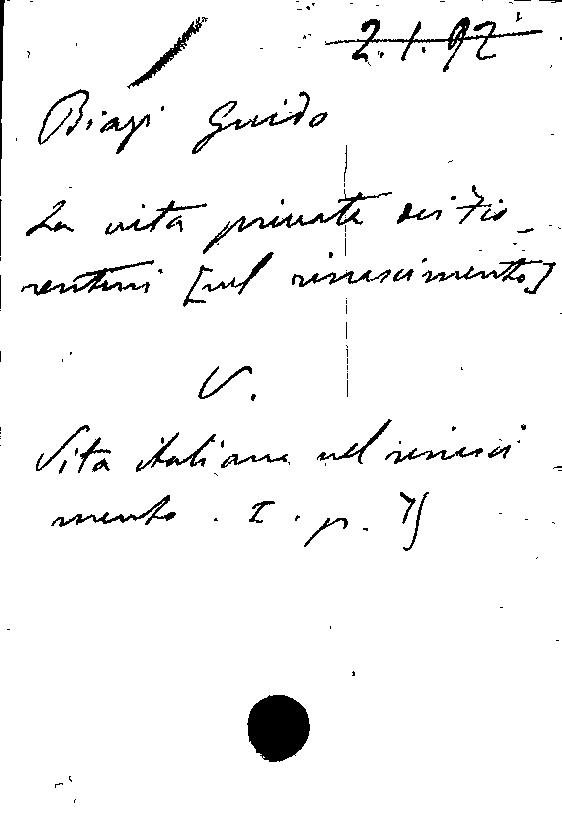 2.1.92
Biagi Guido
La vita privata dei Fio_
rentini [nel rinascimento]
V.
Vita italiana nel rinasci
mento . I . p. 75